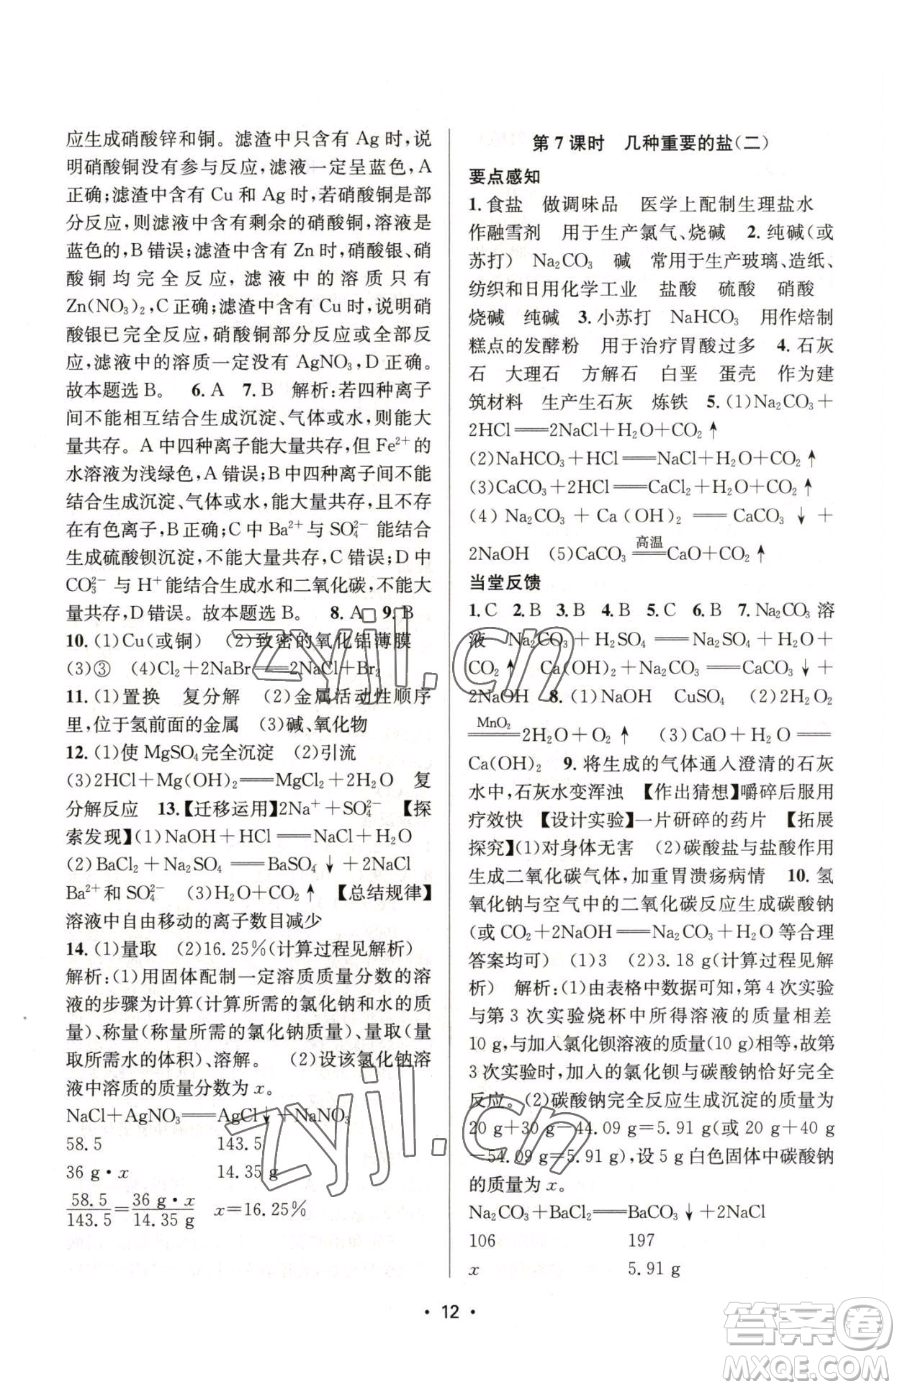 应生成硝酸锌和铜。滤渣中只含有 Ag 时,说
明硝酸铜没有参与反应,滤液一定呈蓝色,A
正确;滤渣中含有 Cu 和 Ag 时,硝酸铜是部
分反应,则滤液中含有剩余的硝酸铜,溶液是
蓝色的,B 错误;滤渣中含有 Zn 时,硝酸银、硝
酸铜均完全反应,滤液中的溶质只有
Zn(NO₃)₂,C 正确;滤渣中含有 Cu 时,说明硝
酸银已完全反应,硝酸铜部分反应或全部反
应,滤液中的溶质一定没有 AgNO₃,D 正确。
故本题选 B。 6. A 7. B 解析:若四种离子
间不能相互结合生成沉淀、气体或水,则能大
量共存。A 中四种离子能大量共存,但 Fe²⁺的
水溶液为浅绿色,A 错误;B 中四种离子不能
结合生成沉淀、气体或水,能大量共存,且不存
在有色离子,B 正确;C 中 Ba²⁺与 SO₄²⁻ 能结合
生成硫酸钡沉淀,不能大量共存,C 错误;D 中
CO₃²⁻与 H⁺能结合生成水和二氧化碳,不能大
量共存,D 错误。故本题选 B。 8. A 9. B
10. (1)Cu(或铜) (2)致密的氧化铝薄膜
(3)③ (4)Cl₂+2NaBr══2NaCl+Br₂
11. (1)置换 复分解 (2)金属活动性顺序
里,位于氢前面的金属 (3)碱、氧化物
12. (1)使 MgSO₄ 完全沉淀 (2)引流
(3)2HCl+Mg(OH)₂══MgCl₂+2H₂O 复
分解反应 13.【迁移运用】2Na⁺+SO₄²⁻ 【探
索发现】(1)NaOH+HCl══NaCl+H₂O
(2)BaCl₂+Na₂SO₄══BaSO₄↓+2NaCl
Ba²⁺和 SO₄²⁻ (3)H₂O+CO₂↑ 【总结规律】
溶液中自由移动的离子数目减少
14. (1)量取 (2)16.25%(计算过程见解析)
解析:(1)用固体配制一定溶质质量分数的溶
液的步骤为计算(计算所需的氯化钠和水的质
量)、称量(称量所需的氯化钠质量)、量取(量
取所需水的体积)、溶解。 (2)设该氯化钠溶
液中溶质的质量分数为 x。
NaCl+AgNO₃══AgCl↓+NaNO₃
58.5 143.5
36 g·x 14.35 g
58.5/143.5=36 g·x/14.35 g x=16.25%
第 7 课时 几种重要的盐(二)
要点感知
1. 食盐 做调味品 医学上配制生理盐水
作融雪剂 用于生产氯气、烧碱 2. 纯碱(或
苏打) Na₂CO₃ 碱 常用于生产玻璃、造纸、
纺织和日用化学工业 盐酸 硫酸 硝酸
烧碱 纯碱 3. 小苏打 NaHCO₃ 用作焙制
糕点的发酵粉 用于治疗胃酸过多 4. 石灰
石 大理石 方解石 白垩 蛋壳 作为建
筑材料 生产生石灰 炼铁 5. (1)Na₂CO₃+
2HCl══2NaCl+H₂O+CO₂↑
(2)NaHCO₃+HCl══NaCl+H₂O+CO₂↑
(3)CaCO₃+2HCl══CaCl₂+H₂O+CO₂↑
(4) Na₂CO₃+Ca(OH)₂══CaCO₃↓+
2NaOH (5)CaCO₃ 高温══ CaO+CO₂↑
当堂反馈
1. C 2. B 3. B 4. B 5. C 6. B 7. Na₂CO₃ 溶
液 Na₂CO₃+H₂SO₄══Na₂SO₄+H₂O+
CO₂↑ Ca(OH)₂+Na₂CO₃══CaCO₃↓+
2NaOH 8. (1)NaOH CuSO₄ (2)2H₂O₂
MnO₂══2H₂O+O₂↑ (3)CaO+H₂O══
Ca(OH)₂ 9. 将生成的气体通入澄清的石灰
水中,石灰水变浑浊 【作出猜想】嚼碎后服用
疗效快 【设计实验】一片研碎的药片 【拓展
探究】(1)对身体无害 (2)碳酸盐与盐酸作用
生成二氧化碳气体,加重胃溃疡病情 10. 氢
氧化钠与空气中的二氧化碳反应生成碳酸钠
(或 CO₂+2NaOH══Na₂CO₃+H₂O 等合理
答案均可) (1)3 (2)3.18 g(计算过程见解
析) 解析:(1)由表格中数据可知,第 4 次实验
与第 3 次实验烧杯中所得溶液的质量相差
10 g,与加入氯化钡溶液的质量(10 g)相等,故第
3 次实验时,加入的氯化钡与碳酸钠恰好完全
反应。(2)碳酸钠完全反应生成沉淀的质量为
20 g+30 g-44.09 g=5.91 g(或 20 g+40 g
-54.09 g=5.91 g),设 5 g 白色固体中碳酸钠
的质量为 x。
Na₂CO₃+BaCl₂══BaCO₃↓+2NaCl
106 197
x 5.91 g
· 12 ·
zyjl.cn
zyjl.cn
答案圈
MXQE.COM